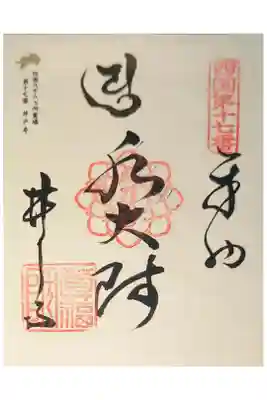 四国第十七番
奉納
水大師
井戸寺
四国八十八ヶ所霊場
第十七番 井戸寺